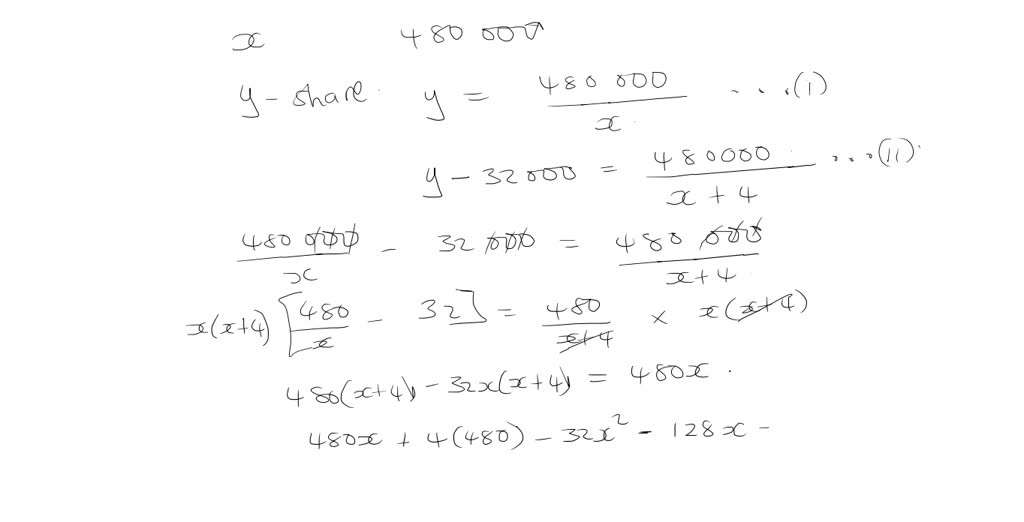 x 480 000
y - share. y = 480 000 / x ...(I)
y - 32000 = 480000 / x + 4 ...(II)
480 000 / x - 32 000 = 480 000 / x+4
x(x+4) [480 / x - 32] = 480 / x+4 × x(x+4)
480(x+4) - 32x(x+4) = 480x.
480x + 4(480) - 32x² - 128x -